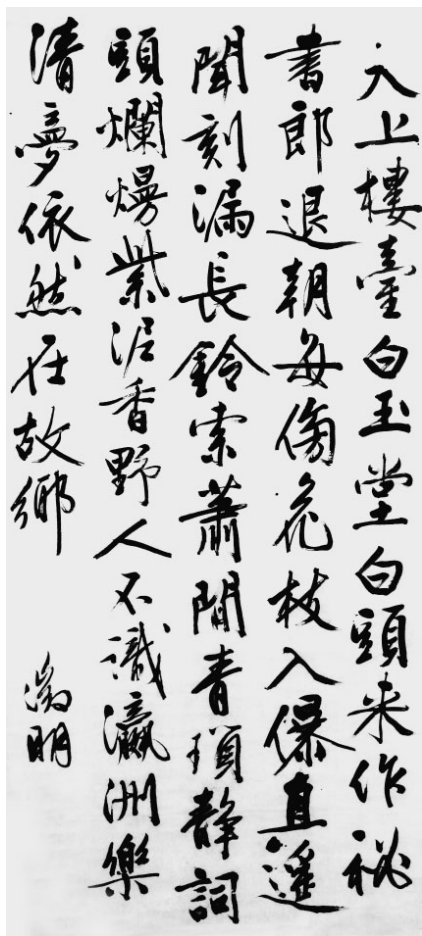 天上樓臺白玉堂白頭来作祕
書郎退朝每傍花枝入儤直遥
聞刻漏長鈴索蕭閒青瑣静詞
頭爛熳紫泥香野人不識瀛洲樂
清夢依然在故鄉
徵明